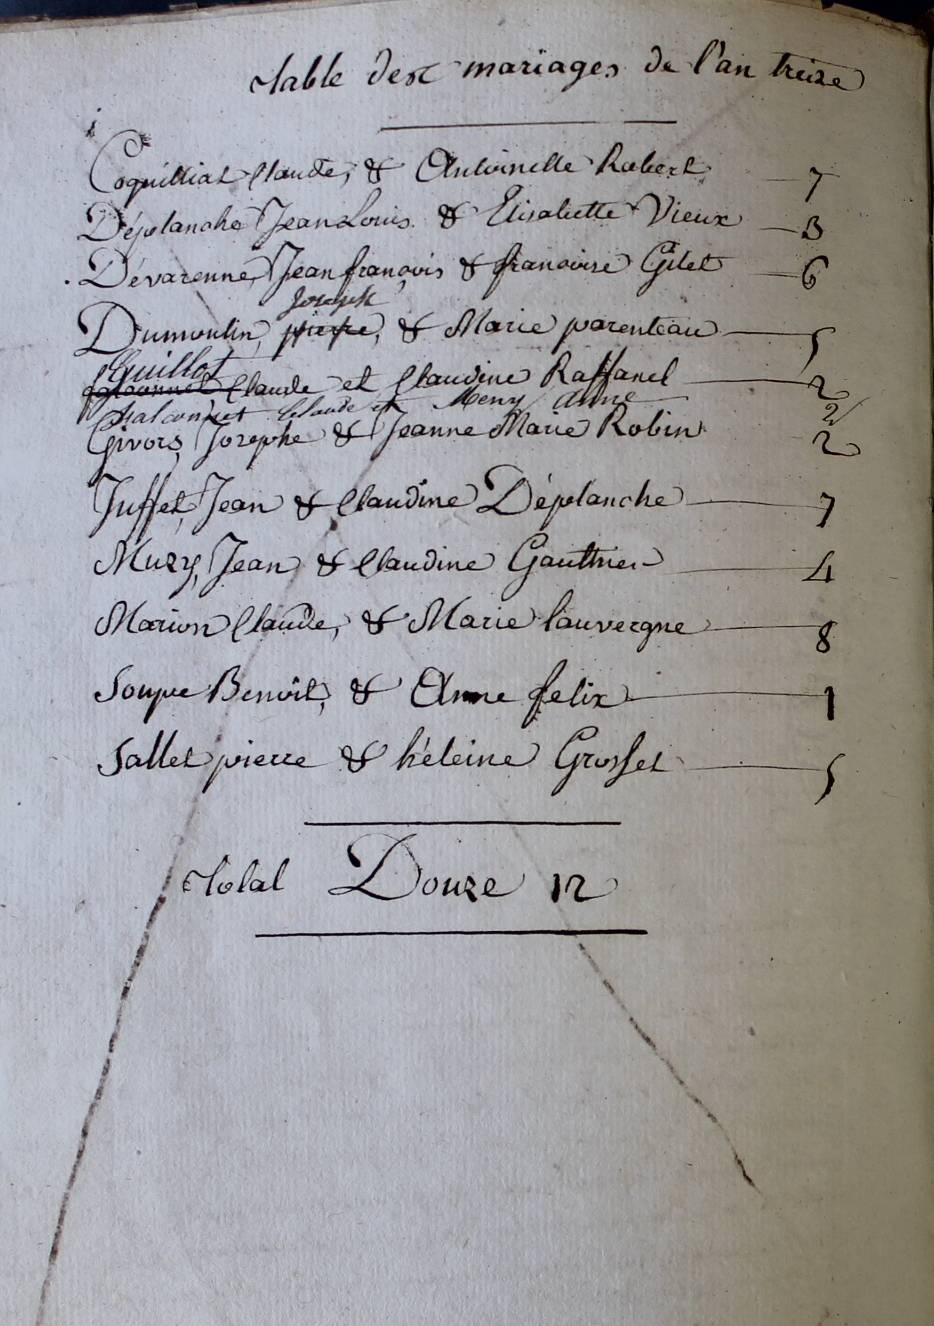 table des mariages de l'an treize
Coquilliat Claude, & Antoinette Robert 7
Déplanche Jean Louis & Elisabette Vieux 3
Dévarenne, Jean françois & françoise Gilet 6
Joseph
Dumoulin, pierre, & Marie parenteau 5
Guillot
Claude et Claudine Raffanel 2
Chalconnet Claude et Meny anne 2
Givors, Josephe & Jeanne Marie Robin 2
Juffet, Jean & Claudine Déplanche 7
Muzy, Jean & Claudine Gauthier 4
Marion Claude, & Marie lauvergne 8
Soupe Benoit, & Anne felix 1
Sallet pierre & héleine Grosset 5
total Douze 12